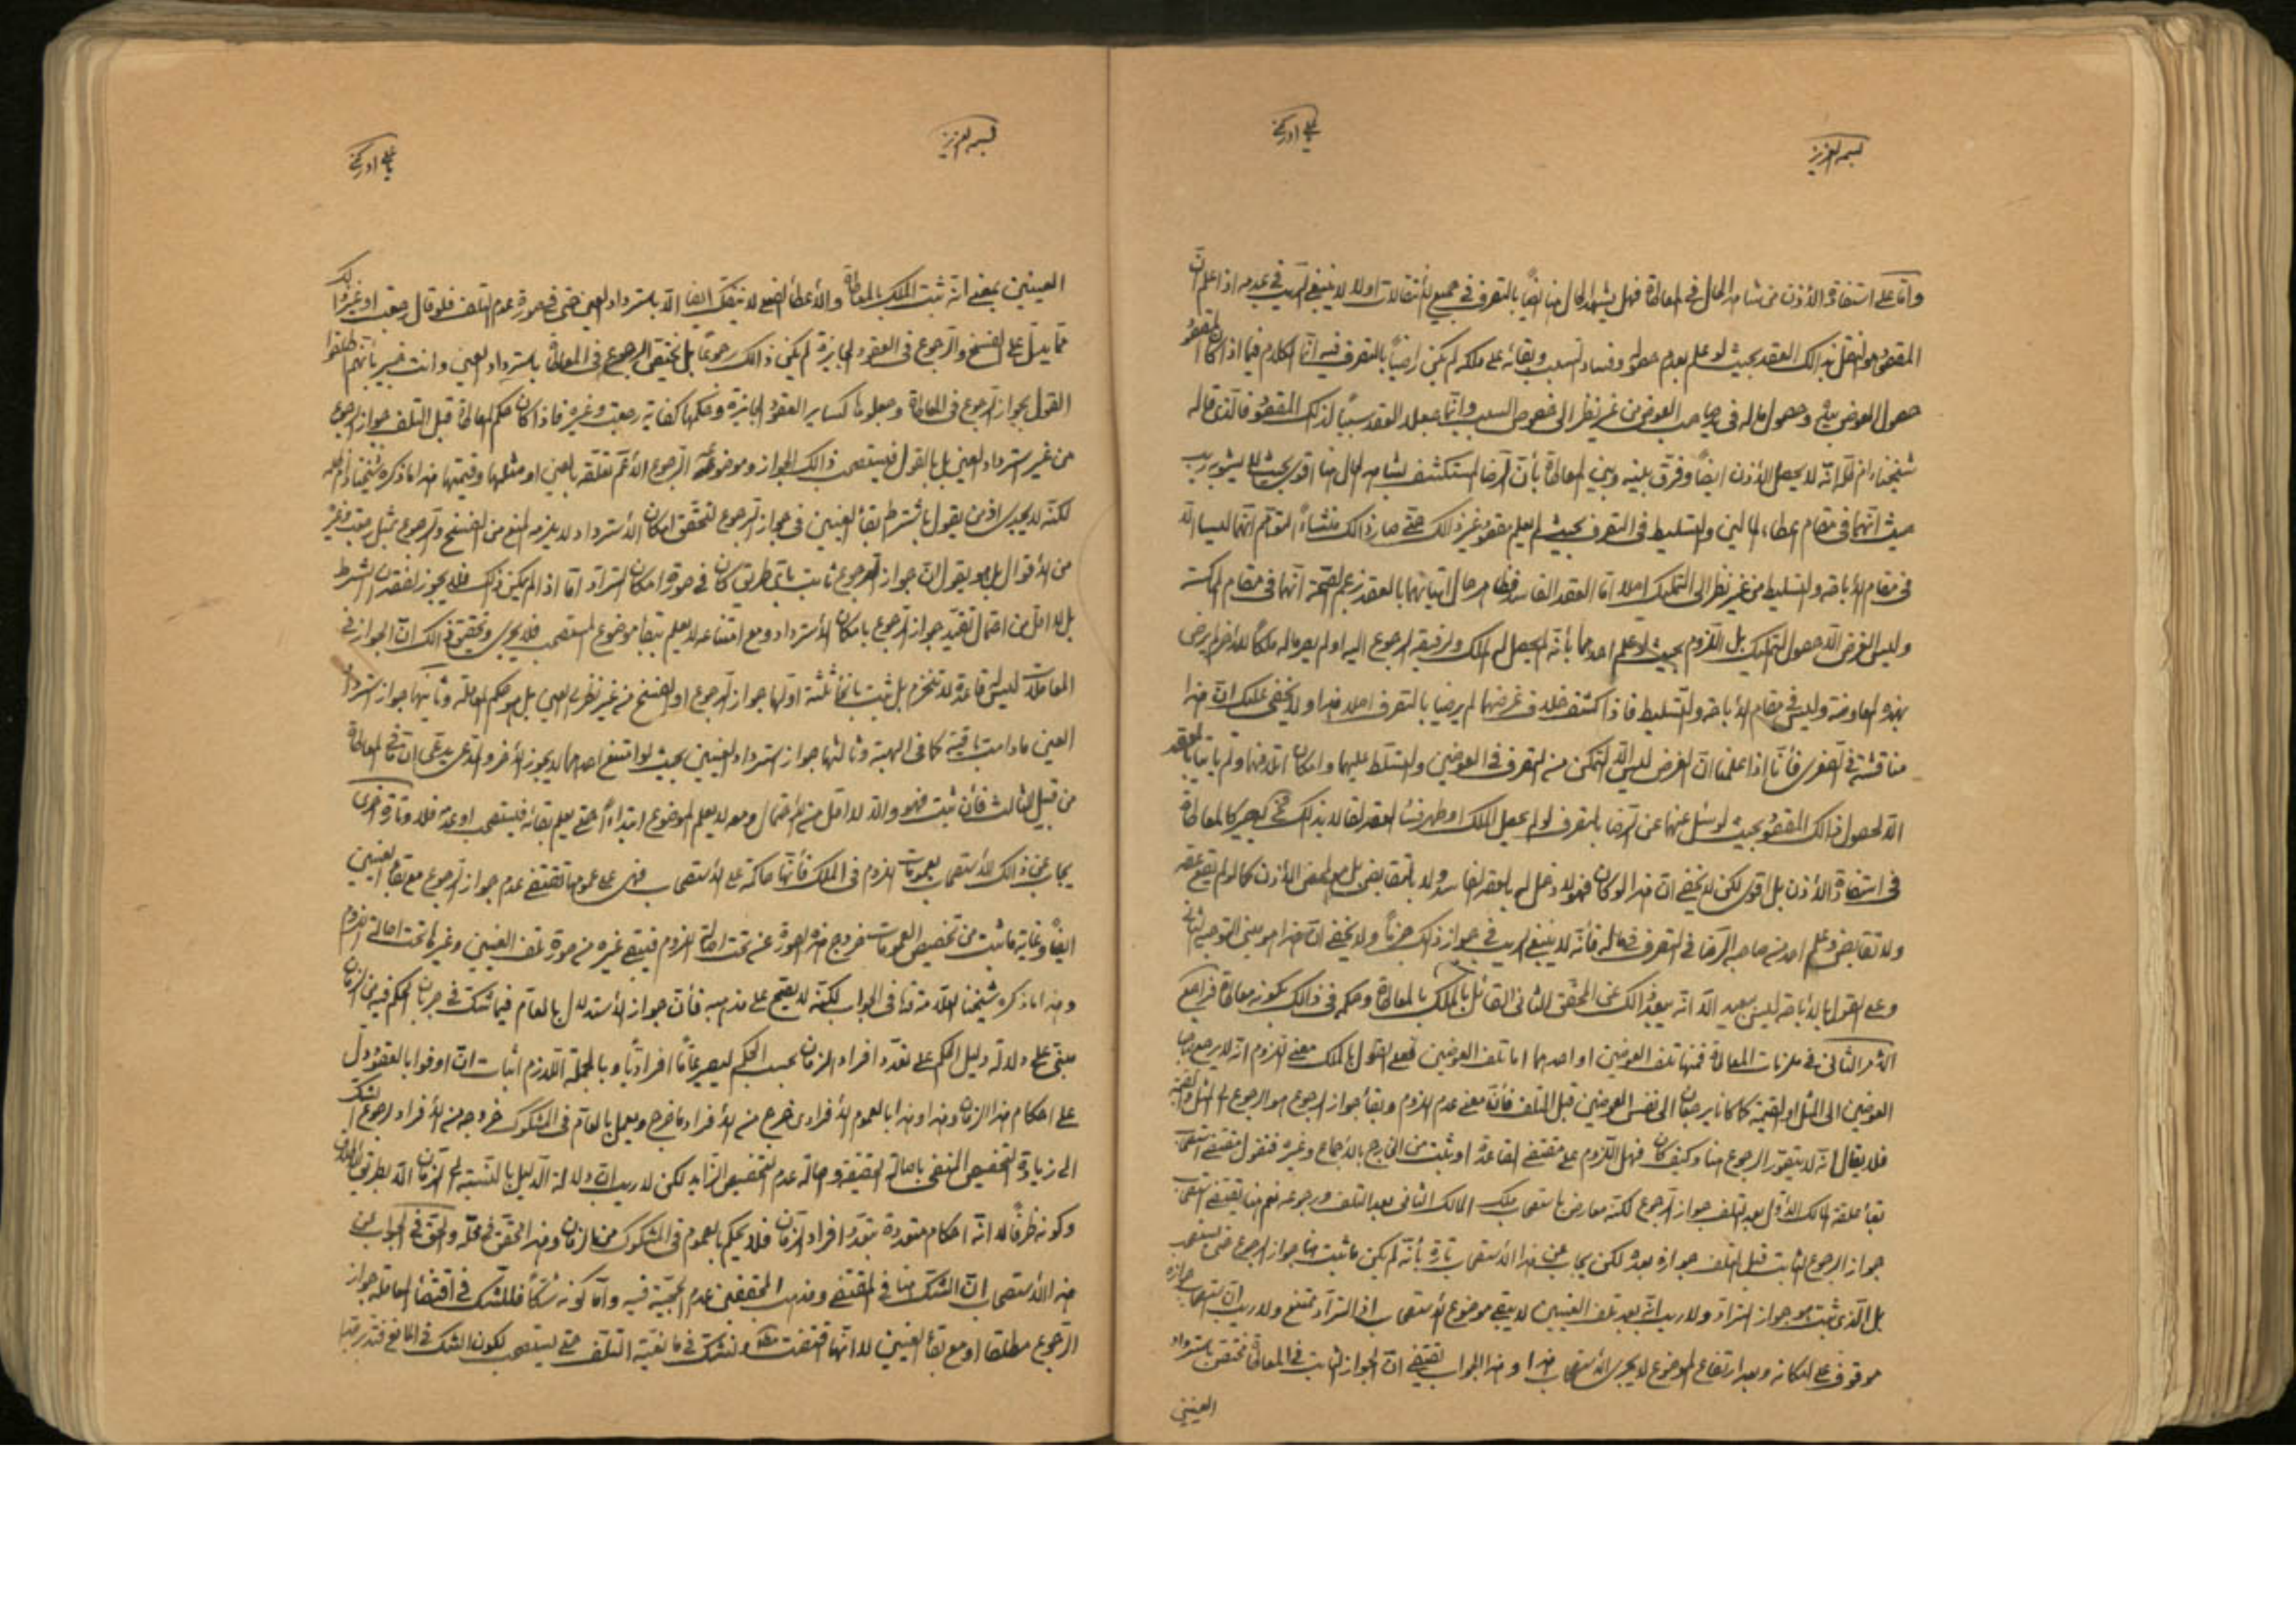 بسمه العزيز
يا علي ادركني
وامّا على استفادة الأذن من شاهد الحال في المعاطاة فهل يشهد الحال هنا ايضًا بالتصرف في جميع الأنتقالات اولا لا ينبغي الريب في عدمه اذا علم انّ
المقصود هو النقل بذالك العقد بحيث لو علم بعدم حصوله وفساد السبب وبقائه على ملكه لم يكن راضيًا بالتصرف فيه انّما الكلام فيما اذا كان المقصود
حصول العوض بيده وحصول ماله في يد صاحب العوض من غير نظر الى خصوص السبب وانّما جعل العقد سببًا لذلك المقصود فالّذي قاله
شيخنا دام ظلّه انّه لا يحصل الأذن ايضًا وفرّق بينه وبين المعاطاة بأنّ الرضا المستكشف بشاهد الحال هنا اقوى بحيث لا يشوبه ريب
حيث انّهما في مقام اعطاء المالين والتسليط في التصرف بحيث لم يعلم مقصود غير ذالك حتّى صار ذالك منشاءً لتوهّم انّهما ليسا الّا
في مقام الأباحة والتسليط من غير نظر الى التمليك اصلا امّا العقد الفاسد فظاهر حال اتيانهما بالعقد بزعم الصّحة انّهما في مقام الملكيّة
وليس الغرض الّا حصول التمليك بل اللّزوم بحيث لو علم احدهما بأنّه لم يحصل له الملك ولرفيقه الرجوع اليه او لم يصر ماله ملكًا للأخر لم يرض
بهذه المعاوضة وليس في مقام الأباحة والتسليط فاذا كشف خلاف غرضهما لم يرضيا بالتصرف اصلا هذا ولا يخفى عليك انّ هذا
مناقشة في الصغرى فأنّا اذا علمنا انّ الغرض ليس الّا التمكن من التصرف في العوضين والتسلّط عليهما وامكان اتلافهما ولم يأتيا بالعقد
الّا لحصول ذالك المقصود بحيث لو سئل عنهما عن الرضا بالتصرف لو لم يحصل الملك او ظهر فساد العقد لقالا بذلك فح يصير كالمعاطاة
في استفادة الأذن بل اقوى لكن لا يخفى انّ هذا لو كان فهو لا دخل له بالعقد الفاسد ولا بالتقابض بل هو لمحض الأذن كما لو لم يقع عقد
ولا تقابض وعلم احد من صاحبه الرضا في التصرف في ماله فأنّه لا ينبغي الريب في جواز ذلك جزمًا ولا يخفى انّ هذا هو معنى التوجيه الثاني
وعلى القول بالأباحة ليس ببعيد الّا انّه يبعد ذالك عن المحقق الثاني القائل بالملك بالمعاطاة وحكمه في ذالك بكونه معاطاة فراجع
الأمر الثاني في ملزمات المعاطاة فمنها تلف العوضين او احدهما امّا تلف العوضين فعلى القول بالملك معنى اللزوم انّه لا يرجع صاحبا
العوضين الى المثل او القيمة كما كانا يرجعان الى نفس العوضين قبل التلف فأنّ معنى عدم اللزوم وبقاء جواز الرجوع هو الرجوع الى المثل والقيمة
فلا يقال انّه لا يتصوّر الرجوع هنا وكيف كان فهل اللّزوم على مقتضى القاعدة او ثبت من الخارج بالأجماع وغيره فنقول مقتضى استصحاب
بقاء علقة المالك الأوّل بعد التلف جواز الرجوع لكنّه معارض باستصحاب ملك المالك الثاني بعد التلف ورجوعه نعم هنا يقتضى استصحاب
جواز الرجوع الثابت قبل التلف جوازه بعده لكن يجاب عن هذا الأستصحاب تارة بأنّه لم يكن ما ثبت هنا جواز الرجوع حتى يستصحب
بل الّذى ثبت هو جواز الترادّ ولا ريب انّه بعد تلف العينين لا يبقى موضوع الأستصحاب اذ الترادّ ممتنع ولا ريب انّ استصحاب جوازه
موقوف على امكانه وبعد ارتفاع الموضوع لا يجرى الأستصحاب هذا وهذا الجواب يقتضى انّ الجواز الثابت في المعاطاة مختصّ باسترداد
العينين
بسمه العزيز
يا علي ادركني
العينين بمعنى انّه ثبت الملك بالمعاطاة والأعطاء الفعلي لا ينفكّ ايضا الّا باسترداد العين حتى في صورة عدم التلف فلو قال رجعت او غير ذلك
ممّا يدلّ على الفسخ والرجوع في العقود الجايزة لم يكن ذالك رجوعًا بل يختصّ الرجوع في المعاطاة باسترداد العين وانت خبير بأنّهم اطلقوا
القول بجواز الرجوع في المعاطاة وجعلوها كساير العقود الجايزة وحكمها كفاية رجعت وغيره فاذا كان حكم المعاطاة قبل التلف جواز الرجوع
من غير استرداد العين بل بالقول فيستصحب ذالك الجواز وموضوعه الرجوع الأعمّ تعلّقه بالعين او مثلها وقيمتها هذا ما ذكره شيخنا دام ظلّه
لكنّه لا يجدى اذ من يقول باشتراط بقاء العينين في جواز الرجوع لتحقّق امكان الأسترداد لا يلزمه المنع من الفسخ والرجوع بمثل رجعت وغيره
من الأقوال بل هو يقول انّ جواز الرجوع ثابت بأىّ طريق كان في صورة امكان الترادّ امّا اذا لم يكن ذلك فلا يجوز لفقدان الشرط
بل لا اقلّ من احتمال تقيّد جواز الرجوع بامكان الأسترداد ومع امتناعه لا يعلم ببقاء موضوع المستصحب فلا يجرى وتحقيق ذالك انّ الجواز في
المعاملات ليس له قاعدة لا تنخرم بل ثبت بأنحاء ثلثة اوّلها جواز الرجوع او الفسخ من غير نظر الى العين بل هو حكم المعاملة وثانيها جواز استرداد
العين ما دامت باقية كما في الهبة وثالثها جواز استرداد العينين بحيث لو امتنع احدهما لا يجوز الأخر والمدّعى يدّعى انّ ما في المعاطاة
من قبيل الثالث فأن ثبت فهو والّا لا اقلّ من الأحتمال ومعه لا يعلم الموضوع ابتداءً حتى يعلم بقائه فيستصحب او عدمه فلا وتارة اخرى
يجاب عن ذالك الأستصحاب بعمومات اللزوم في الملك فأنّها حاكمة على الأستصحاب فهى على عمومها تقتضى عدم جواز الرجوع مع بقاء العينين
ايضًا وغاية ما ثبت من تخصيص العمومات خروج هذه الصورة عن تحت اصالة اللزوم فيبقى غيره من صورة تلف العينين وغيرها تحت اصالة اللزوم
وهذا ما ذكره شيخنا العلّامة هنا في الجواب لكنّه لا يصحّ على مذهبه فأنّ جواز الأستدلال بالعام فيما شكّ في جريان الحكم فيه من الزمان
مبنيّ على دلالة دليل الحكم على تعدّد افراد الزمان بحسب الحكم ليصير عامًّا افراديًّا وبالجملة اللّازم اثبات انّ اوفوا بالعقود دلّ
على احكام هذا الزمان وهذا وهذا بالعموم الأفرادى خرج من الأفراد ما خرج ويعمل بالعام في المشكوك خروجه من الأفراد لرجوع الشك
الى زيادة التخصيص المنفى باصالة الحقيقة واصالة عدم التخصيص الزايد لكن لا ريب انّ دلالة الدليل بالنسبة الى الزمان الّا بطريق الأطلاق
وكونه ظرفًا لا انّه احكام متعددة بتعدّد افراد الزمان فلا يحكم بالعموم في المشكوك من الزمان وهذا محقق في محلّه والحق في الجواب عن
هذا الأستصحاب انّ الشكّ هنا في المقتضى ومذهب المحققين عدم الحجيّة فيه وامّا كونه شكًّا فللشك في اقتضاء المعاملة جواز
الرجوع مطلقا او مع بقاء العينين لا انّها اقتضت مطلقا ونشكّ في مانعيّة التلف حتى يستصحب لكون الشك في المانع فتدبّر جيّدا